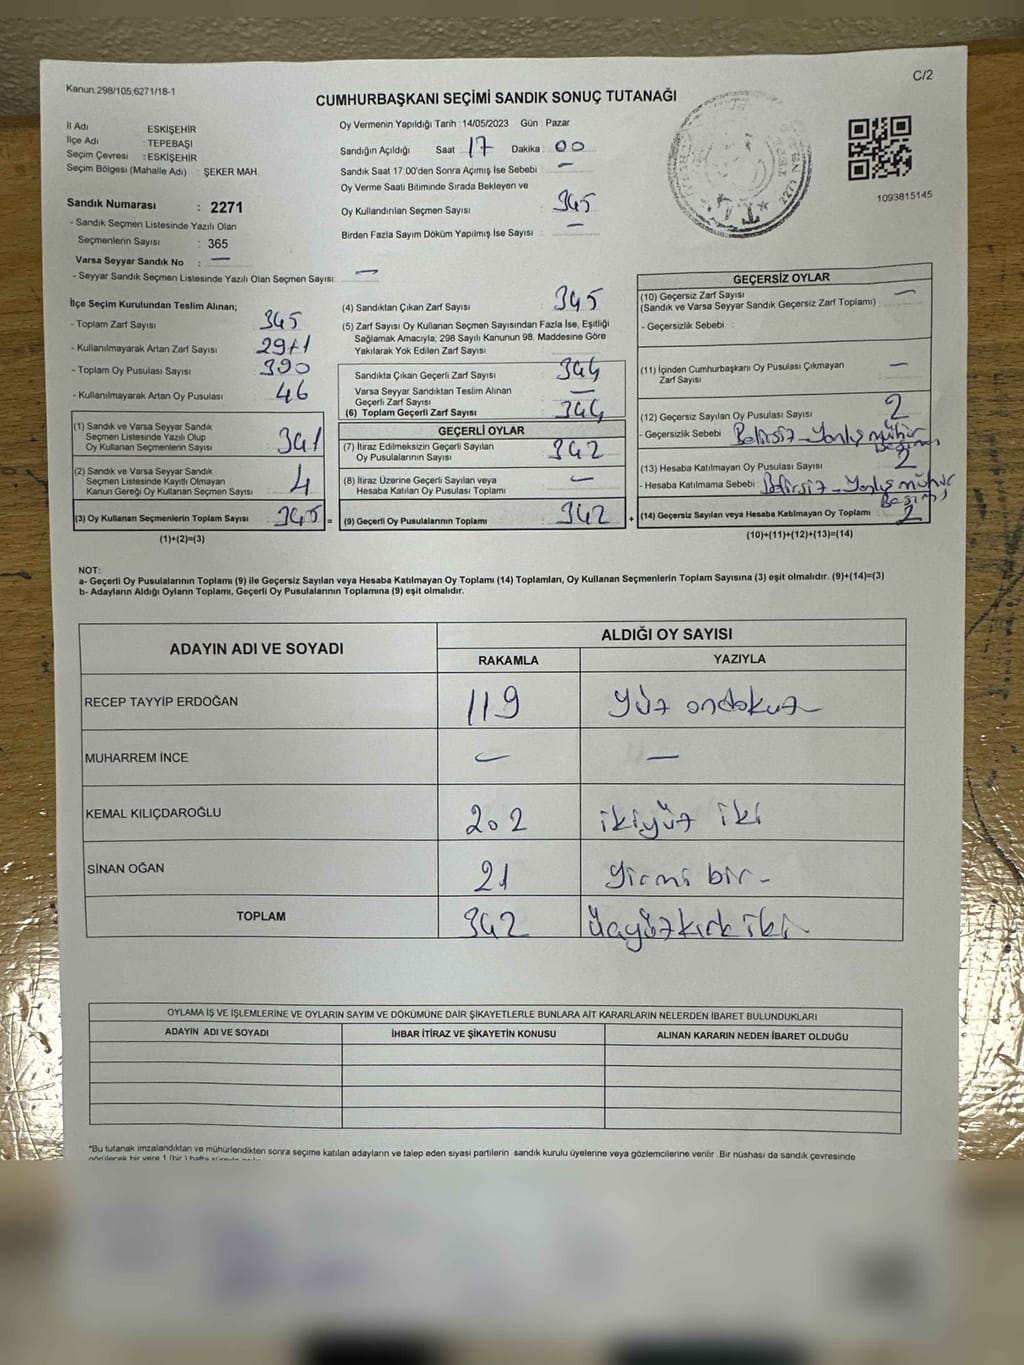 C/2
Kanun.298/105,6271/18-1
CUMHURBAŞKANI SEÇİMİ SANDIK SONUÇ TUTANAĞI
İl Adı ESKİŞEHİR
İlçe Adı : TEPEBAŞI
Seçim Çevresi : ESKİŞEHİR
Seçim Bölgesi (Mahalle Adı) : ŞEKER MAH.
Sandık Numarası : 2271
- Sandık Seçmen Listesinde Yazılı Olan
Seçmenlerin Sayısı : 365
Varsa Seyyar Sandık No : —
- Seyyar Sandık Seçmen Listesinde Yazılı Olan Seçmen Sayısı: —
Oy Vermenin Yapıldığı Tarih : 14/05/2023 Gün : Pazar
Sandığın Açıldığı Saat 17 Dakika : 00
Sandık Saat 17.00'den Sonra Açımış İse Sebebi : —
Oy Verme Saati Bitiminde Sırada Bekleyen ve
Oy Kullandırılan Seçmen Sayısı : 345
Birden Fazla Sayım Döküm Yapılmış İse Sayısı : —
2271
1093815145
İlçe Seçim Kurulundan Teslim Alınan;
- Toplam Zarf Sayısı 345
- Kullanılmayarak Artan Zarf Sayısı 29+1
- Toplam Oy Pusulası Sayısı 390
- Kullanılmayarak Artan Oy Pusulası 46
(1) Sandık ve Varsa Seyyar Sandık
Seçmen Listesinde Yazılı Olup
Oy Kullanan Seçmenlerin Sayısı 341
(2) Sandık ve Varsa Seyyar Sandık
Seçmen Listesinde Kayıtlı Olmayan
Kanun Gereği Oy Kullanan Seçmen Sayısı 4
(3) Oy Kullanan Seçmenlerin Toplam Sayısı 345 =
(1)+(2)=(3)
(4) Sandıktan Çıkan Zarf Sayısı : 345
(5) Zarf Sayısı Oy Kullanan Seçmen Sayısından Fazla İse, Eşitliği
Sağlamak Amacıyla; 298 Sayılı Kanunun 98. Maddesine Göre
Yakılarak Yok Edilen Zarf Sayısı :
Sandıkta Çıkan Geçerli Zarf Sayısı : 344
Varsa Seyyar Sandıktan Teslim Alınan
Geçerli Zarf Sayısı : —
(6) Toplam Geçerli Zarf Sayısı : 344
GEÇERLİ OYLAR
(7) İtiraz Edilmeksizin Geçerli Sayılan
Oy Pusulalarının Sayısı : 342
(8) İtiraz Üzerine Geçerli Sayılan veya
Hesaba Katılan Oy Pusulası Toplamı : —
(9) Geçerli Oy Pusulalarının Toplamı : 342 +
GEÇERSİZ OYLAR
(10) Geçersiz Zarf Sayısı : —
(Sandık ve Varsa Seyyar Sandık Geçersiz Zarf Toplamı)
- Geçersizlik Sebebi :
(11) İçinden Cumhurbaşkanı Oy Pusulası Çıkmayan : —
Zarf Sayısı
(12) Geçersiz Sayılan Oy Pusulası Sayısı : 2
- Geçersizlik Sebebi : Belirsiz - Yanlış mühür
Basımı
(13) Hesaba Katılmayan Oy Pusulası Sayısı : 2
- Hesaba Katılmama Sebebi : Belirsiz - Yanlış mühür
Basımı
(14) Geçersiz Sayılan veya Hesaba Katılmayan Oy Toplamı : 2
(10)+(11)+(12)+(13)=(14)
NOT:
a- Geçerli Oy Pusulalarının Toplamı (9) ile Geçersiz Sayılan veya Hesaba Katılmayan Oy Toplamı (14) Toplamları, Oy Kullanan Seçmenlerin Toplam Sayısına (3) eşit olmalıdır. (9)+(14)=(3)
b- Adayların Aldığı Oyların Toplamı, Geçerli Oy Pusulalarının Toplamına (9) eşit olmalıdır.
ADAYIN ADI VE SOYADI ALDIĞI OY SAYISI
RAKAMLA YAZIYLA
RECEP TAYYİP ERDOĞAN 119 yüz ondokuz
MUHARREM İNCE — —
KEMAL KILIÇDAROĞLU 202 ikiyüz iki
SİNAN OĞAN 21 yirmi bir -
TOPLAM 342 Üçyüzkırk iki
OYLAMA İŞ VE İŞLEMLERİNE VE OYLARIN SAYIM VE DÖKÜMÜNE DAİR ŞİKAYETLERLE BUNLARA AİT KARARLARIN NELERDEN İBARET BULUNDUKLARI
ADAYIN ADI VE SOYADI İHBAR İTİRAZ VE ŞİKAYETİN KONUSU ALINAN KARARIN NEDEN İBARET OLDUĞU
*Bu tutanak imzalandıktan ve mühürlendikten sonra seçime katılan adayların ve talep eden siyasi partilerin sandık kurulu üyelerine veya gözlemcilerine verilir .Bir nüshası da sandık çevresinde